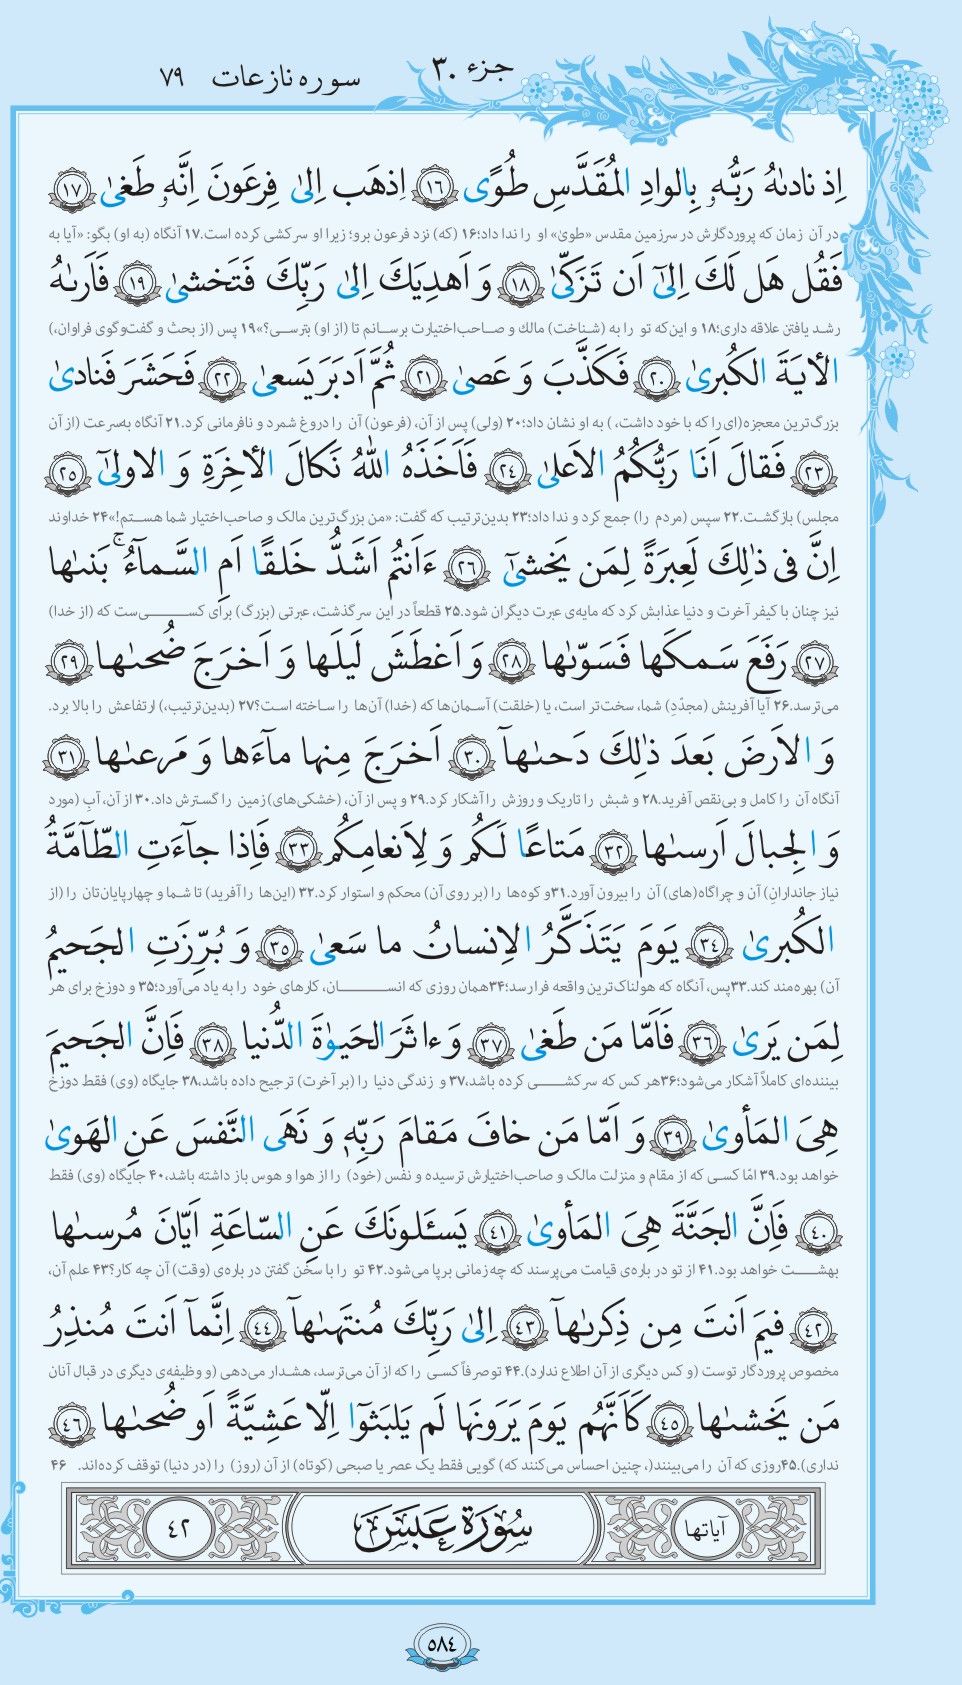 جزء ۳۰
سوره نازعات ۷۹
اِذ نادىٰهُ رَبُّهٗ بِالوادِ المُقَدَّسِ طُوًى ١٦ اِذهَب اِلىٰ فِرعَونَ اِنَّهٗ طَغىٰ ١٧
در آن زمان که پروردگارش در سرزمین مقدس «طوی» او را ندا داد؛۱۶ (که) نزد فرعون برو؛ زیرا او سرکشی کرده است.۱۷ آنگاه (به او) بگو: «آیا به
فَقُل هَل لَكَ اِلىٰٓ اَن تَزَكّىٰ ١٨ وَ اَهدِيَكَ اِلىٰ رَبِّكَ فَتَخشىٰ ١٩ فَاَرىٰهُ
رشد یافتن علاقه داری؛۱۸ و این‌که تو را به (شناخت) مالك و صـاحب‌اختیارت برسـانم تا (از او) بترسـی؟»۱۹ پس (از بحث و گفت‌وگوی فراوان،)
الأيَةَ الكُبرىٰ ٢٠ فَكَذَّبَ وَ عَصىٰ ٢١ ثُمَّ اَدبَرَ يَسعىٰ ٢٢ فَحَشَرَ فَنادىٰ
بزرگ‌ترین معجزه(ای را که با خود داشت، ) به او نشان داد؛۲۰ (ولی) پس از آن، (فرعون) آن را دروغ شمرد و نافرمانی کرد.۲۱ آنگاه به‌سرعت (از آن
٢٣ فَقالَ اَنَا رَبُّكُمُ الاَعلىٰ ٢٤ فَاَخَذَهُ اللّٰهُ نَكالَ الأخِرَةِ وَ الاولىٰٓ ٢٥
مجلس) بازگشت.۲۲ سپس (مردم را) جمع کرد و ندا داد؛۲۳ بدین‌ترتیب که گفت: «من بزرگ‌ترین مالک و صاحب‌اختیار شما هسـتم!»۲۴ خداوند
اِنَّ فى ذٰلِكَ لَعِبرَةً لِمَن يَخشىٰٓ ٢٦ ءَاَنتُم اَشَدُّ خَلقًا اَمِ السَّمآءُ ۚ بَنىٰها
نیز چنان با کیفر آخرت و دنیا عذابش کرد که مایه‌ی عبرت دیگران شود.۲۵ قطعاً در این سرگذشت، عبرتی (بزرگ) برای کســـــی‌ست که (از خدا)
٢٧ رَفَعَ سَمكَها فَسَوّىٰها ٢٨ وَ اَغطَشَ لَيلَها وَ اَخرَجَ ضُحىٰها ٢٩
می‌ترسد.۲۶ آیا آفرینش (مجدّدِ) شما، سخت‌تر است، یا (خلقت) آسـمان‌ها که (خدا) آن‌ها را ساخته است؟۲۷ (بدین‌ترتیب،) ارتفاعش را بالا برد.
وَ الاَرضَ بَعدَ ذٰلِكَ دَحىٰهآ ٣٠ اَخرَجَ مِنها مآءَها وَ مَرعىٰها ٣١
آنگاه آن را کامل و بی‌نقص آفرید.۲۸ و شبش را تاریک و روزش را آشکار کرد.۲۹ و پس از آن، (خشکی‌های) زمین را گسترش داد.۳۰ از آن، آب (مورد
وَ الجِبالَ اَرسىٰها ٣٢ مَتاعًا لَكُم وَ لِاَنعامِكُم ٣٣ فَاِذا جآءَتِ الطّآمَّةُ
نیاز جانداران) آن و چراگاه(های) آن را بیرون آورد.۳۱ و کوه‌ها را (بر روی آن) محکم و استوار کرد.۳۲ (این‌ها را آفرید) تا شـما و چهارپایان‌تان را (از
الكُبرىٰ ٣٤ يَومَ يَتَذَكَّرُ الاِنسانُ ما سَعىٰ ٣٥ وَ بُرِّزَتِ الجَحيمُ
آن) بهره‌مند کند.۳۳ پس، آنگاه که هولناک‌ترین واقعه فرارسد؛۳۴ همان روزی که انســـــان، کارهای خود را به یاد می‌آورد؛۳۵ و دوزخ برای هر
لِمَن يَرىٰ ٣٦ فَاَمّا مَن طَغىٰ ٣٧ وَ ءاثَرَ الحَيوٰةَ الدُّنيا ٣٨ فَاِنَّ الجَحيمَ
بیننده‌ای کاملاً آشکار می‌شود؛۳۶ هر کس که سرکشـــی کرده باشد،۳۷ و زندگی دنیا را (بر آخرت) ترجیح داده باشد،۳۸ جایگاه (وی) فقط دوزخ
هِىَ المَأوىٰ ٣٩ وَ اَمّا مَن خافَ مَقامَ رَبِّهٖ وَ نَهَى النَّفسَ عَنِ الهَوىٰ
خواهد بود.۳۹ امّا کسـی که از مقام و منزلت مالک و صاحب‌اختیارش ترسیده و نفس (خود) را از هوا و هوس باز داشته باشد،۴۰ جایگاه (وی) فقط
٤٠ فَاِنَّ الجَنَّةَ هِىَ المَأوىٰ ٤١ يَسـَٔلونَكَ عَنِ السّاعَةِ اَيّانَ مُرسىٰها
بهشـــت خواهد بود.۴۱ از تو در باره‌ی قیامت می‌پرسند که چه‌زمانی برپا می‌شود.۴۲ تو را با سخن گفتن در باره‌ی (وقت) آن چه کار؟۴۳ علم آن،
٤٢ فيمَ اَنتَ مِن ذِكرىٰهآ ٤٣ اِلىٰ رَبِّكَ مُنتَهىٰهآ ٤٤ اِنَّمآ اَنتَ مُنذِرُ
مخصوص پروردگار توست (و کس دیگری از آن اطلاع ندارد).۴۴ تو صرفاً کسـی را که از آن می‌ترسد، هشـدار می‌دهی (و وظیفه‌ی دیگری در قبال آنان
مَن يَخشىٰها ٤٥ كَاَنَّهُم يَومَ يَرَونَها لَم يَلبَثوٓا اِلّا عَشِيَّةً اَو ضُحىٰها ٤٦
نداری).۴۵ روزی که آن را می‌بینند(، چنین احساس می‌کنند که) گویی فقط یک عصر یا صبحی (کوتاه) از آن (روز) را (در دنیا) توقف کرده‌اند. ۴۶
آیاتها سُورَة عَبَسَ ٤٢
٥٨٤